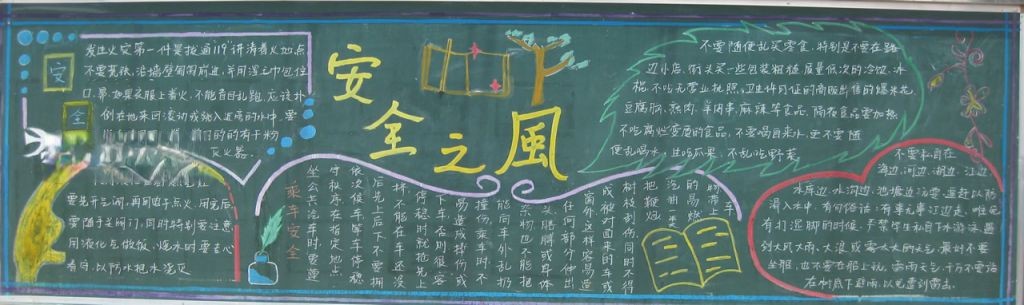 安全之風
安
全
发生火灾第一件是拨通119讲清着火地点
不要慌张,沿墙壁匍匐前进,并用湿毛巾包住
口、鼻,如果衣服上着火,不能盲目乱跑,应该扑
倒在地来回滚动或跳入近处的水中,要
的的有干粉
灭火器。
要先开气阀,再用电子点火,用完后,
要随手关阀门,同时特别要注意
用液化气做饭、烧水时要当心
看守,以防水把火浇灭
乘车安全
坐公共汽车时要遵
守秩序在指定地点
依次候车等车停稳
后先上后下不要拥
挤,不能在车还没
停稳时就抢先上
下车,否则很容
易造成摔伤或
撞伤乘车时不
能向车外乱扔
东西也不能把
头、胳膊或身体
任何部分伸出
窗外这样容易造
成被对面来的车或
树枝刮伤同时不得
把鞭炮
汽油
不要随便乱买零食,特别是不要在路
边小店、街头买一些包装粗糙、质量低次的冷饮、冰
棍,不吃无营业执照、卫生许可证的商贩出售的爆米花、
豆腐脑、熟肉、羊肉串、麻辣等食品,隔夜食品要加热
不吃腐烂变质的食品,不要喝自来水,更不要随
便乱喝水、生吃瓜果,不乱吃野菜
不要私自在
海边、河边、湖边、江边
水库边、水沟边、池塘边玩耍、追赶以防
滑入水中,有句俗话:有事无事江边走、难免
有打湿脚的时候。严禁学生私自下水游泳,遇
到大风大雨、大浪或雾太大的天气,最好不要
坐船,也不要在船上玩,雷雨天气,千万不要站
在树底下避雨,以免遭到雷击。